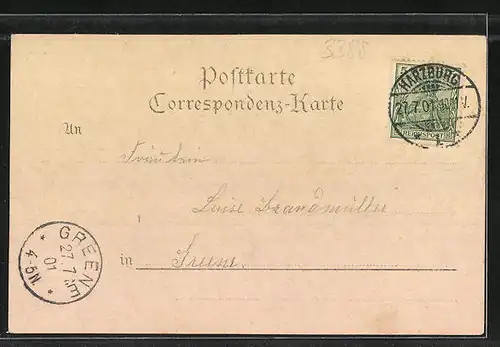 3388
Postkarte
Correspondenz-Karte
An
Fräulein
Luise Brandmüller
in Greene.
HARZBURG
27.7.01
REICHSPOST
GREENE
27 7
01
4-5N.